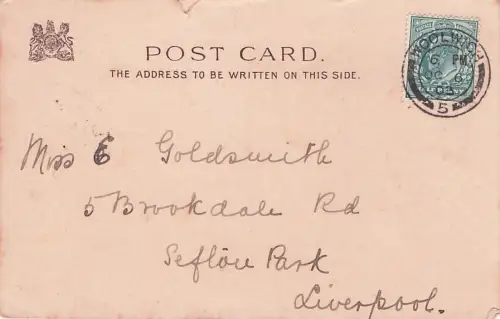 POST CARD.
THE ADDRESS TO BE WRITTEN ON THIS SIDE.
WOOLWICH
6 PM
OC 6
5
Miss E Goldsmith
5 Brookdale Rd
Sefton Park
Liverpool.